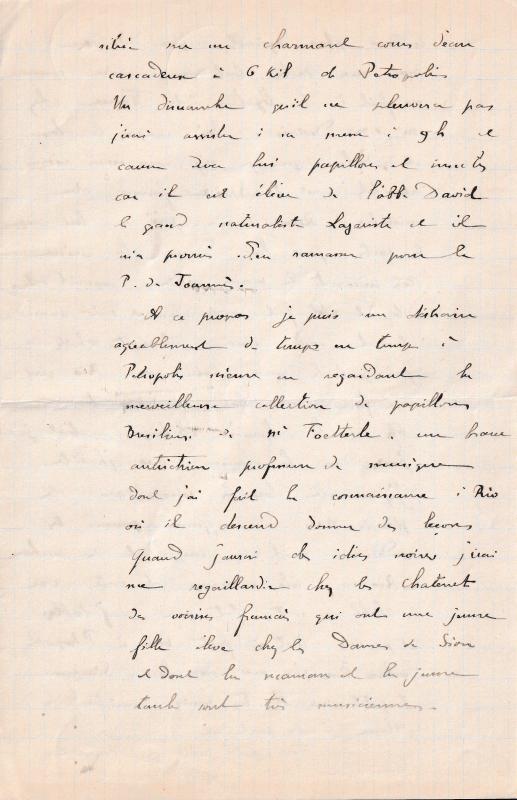 située sur un charmant cours d'eau
cascadeux à 6 Kil de Petropolis
Un dimanche qu'il ne pleuvera pas
j'irai assister à sa messe à 9h et
causer avec lui papillons et insectes
car il est élève de l'abbé David
le grand naturaliste Lazariste et il
m'a promis d'en ramasser pour le
P. de Joannis.
A ce propos je puis me distraire
agréablement de temps en temps à
Petropolis même en regardant la
merveilleuse collection de papillons
Brésiliens de Mr Foetterle. un brave
autrichien professeur de musique
dont j'ai fait la connaissance à Rio
où il descend donner des leçons
Quand j'aurai des idées noires j'irai
me regaillardir chez les Chatenet
des voisins français qui ont une jeune
fille élève chez les Dames de Sion
et dont la maman et la jeune
tante sont très musiciennes.